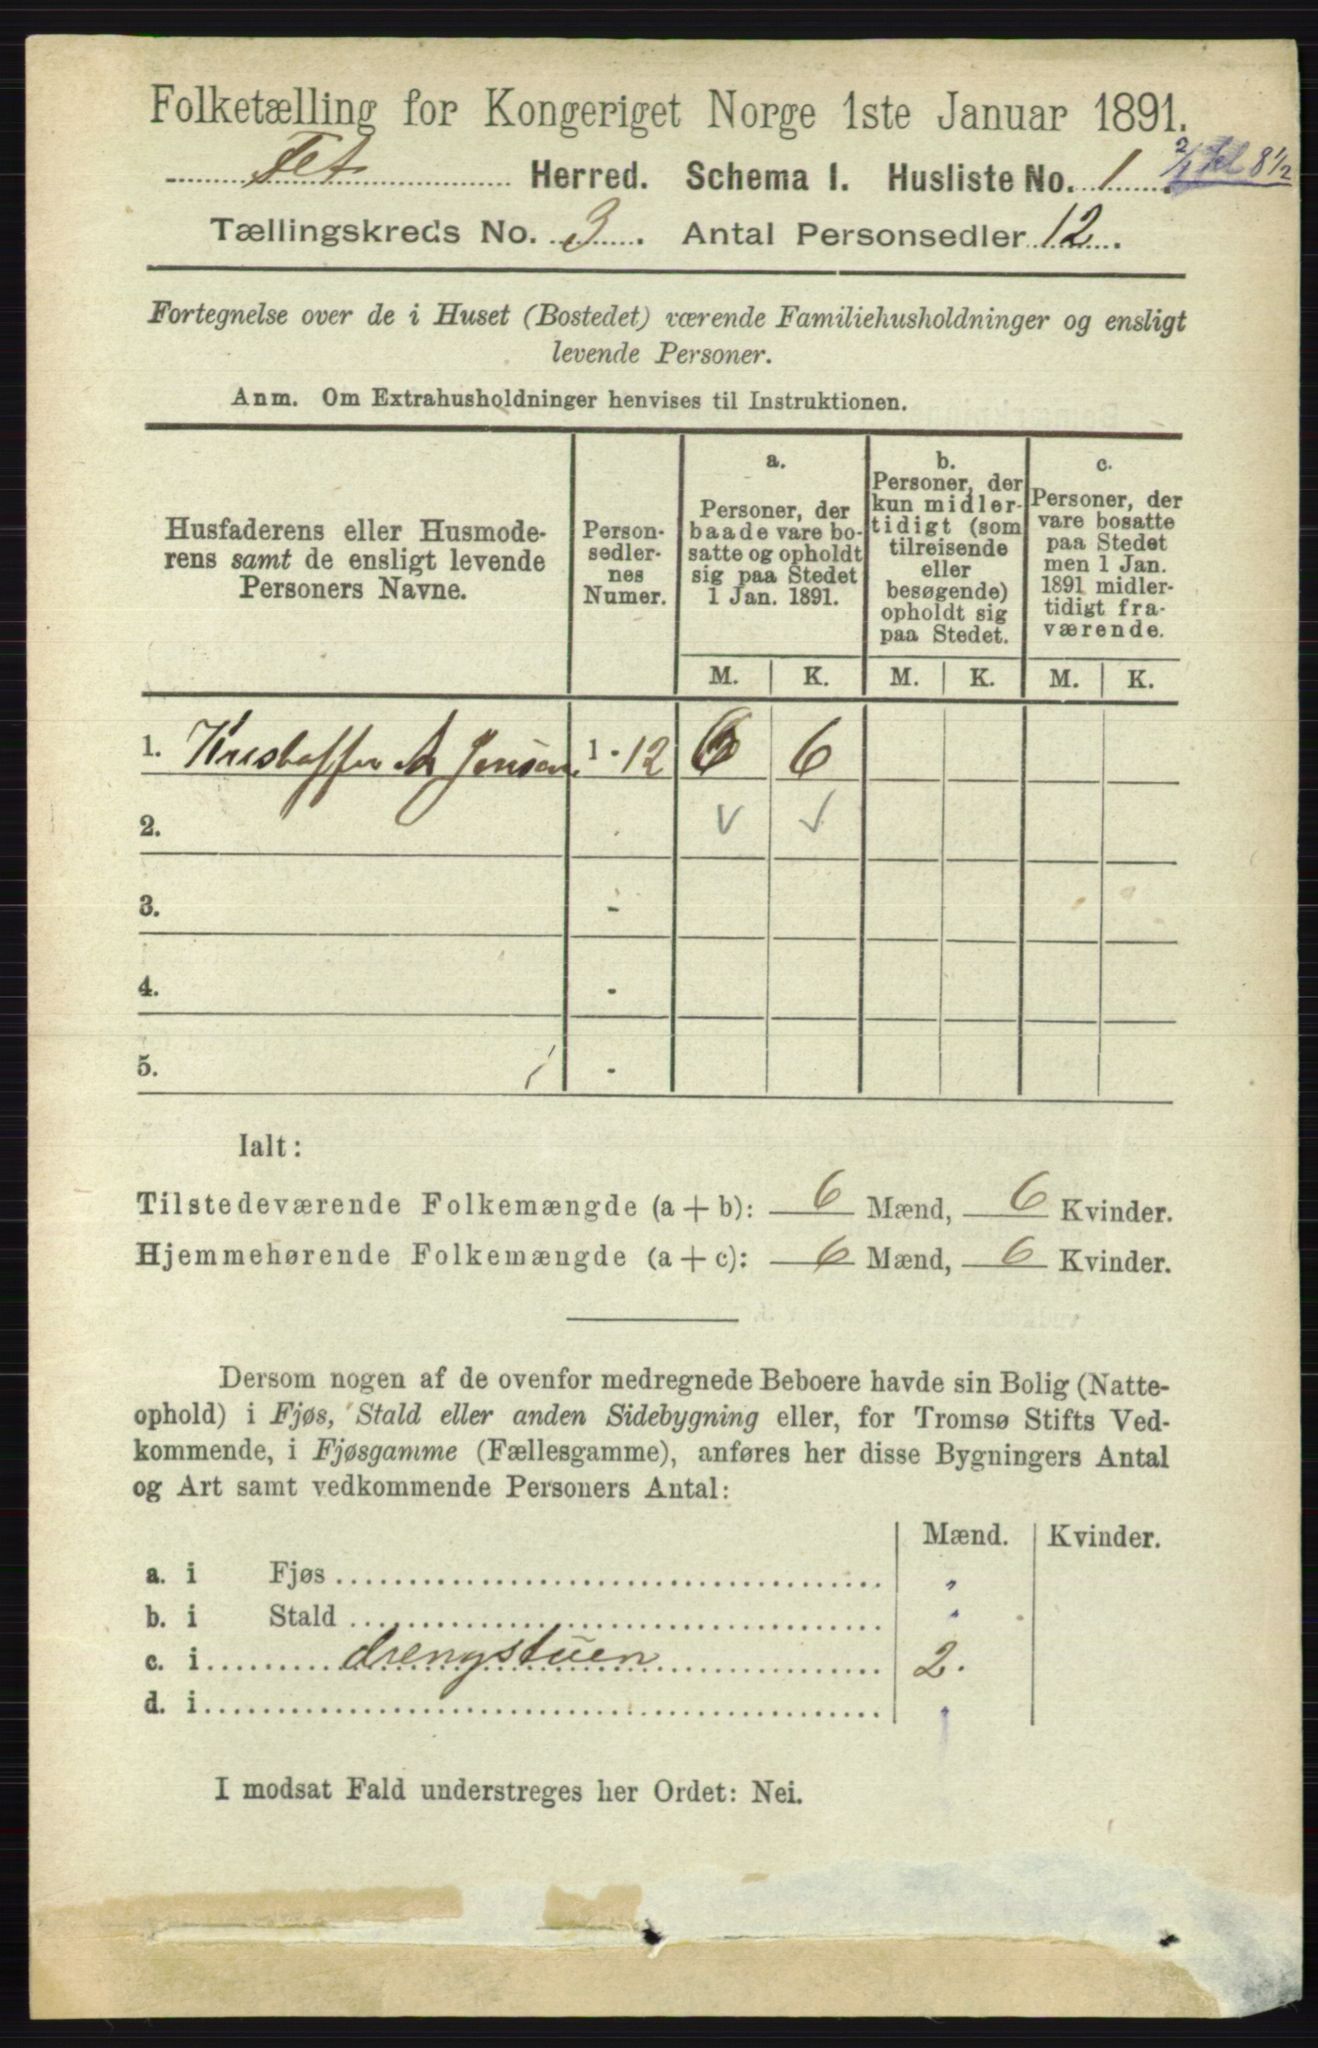 Folketælling for Kongeriget Norge 1ste Januar 1891.
Fet Herred. Schema I. Husliste No. 1. 2/1 kl 8 1/2
Tællingskreds No. 3. Antal Personsedler 12.
Fortegnelse over de i Huset (Bostedet) værende Familiehusholdninger og ensligt
levende Personer.
Anm. Om Extrahusholdninger henvises til Instruktionen.
Husfaderens eller Husmode-
rens samt de ensligt levende
Personers Navne.
Person-
sedler-
nes
Numer.
a.
Personer, der
baade vare bo-
satte og opholdt
sig paa Stedet
1 Jan. 1891.
b.
Personer, der
kun midler-
tidigt (som
tilreisende
eller
besøgende)
opholdt sig
paa Stedet.
c.
Personer, der
vare bosatte
paa Stedet
men 1 Jan.
1891 midler-
tidigt fra-
værende.
M. K. M. K. M. K.
1. Kristoffer A Jensen 1 - 12 6 6
2.
3. -
4. -
5. -
Ialt:
Tilstedeværende Folkemængde (a + b): 6 Mænd, 6 Kvinder.
Hjemmehørende Folkemængde (a + c): 6 Mænd, 6 Kvinder.
Dersom nogen af de ovenfor medregnede Beboere havde sin Bolig (Natte-
ophold) i Fjøs, Stald eller anden Sidebygning eller, for Tromsø Stifts Ved-
kommende, i Fjøsgamme (Fællesgamme), anføres her disse Bygningers Antal
og Art samt vedkommende Personers Antal:
Mænd. Kvinder.
a. i Fjøs "
b. i Stald "
c. i drengstuen 2.
d. i "
I modsat Fald understreges her Ordet: Nei.